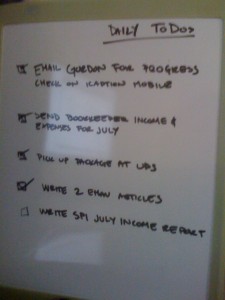 DAILY TODOS
EMAIL GORDON FOR PROGRESS
CHECK ON ICAPTION MOBILE
SEND BOOKKEEPER INCOME &
EXPENSES FOR JULY
PICK UP PACKAGE AT UPS
WRITE 2 EHOW ARTICLES
WRITE SPI JULY INCOME REPORT